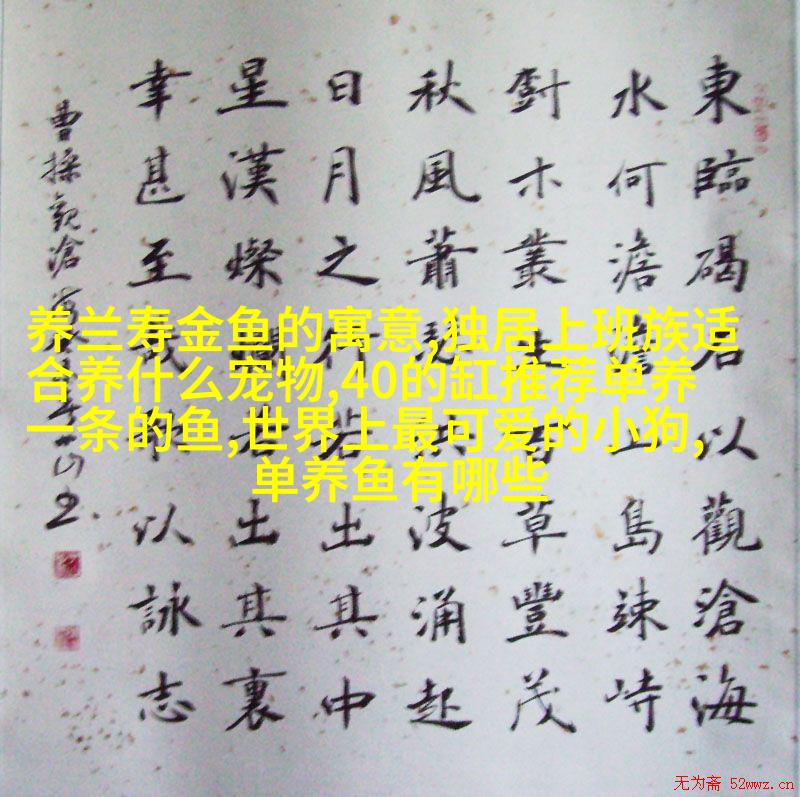 養兰寿金鱼的寓意,独居上班族适
合养什么宠物,40的缸推荐单养
一条的鱼,世界上最可爱的小狗,
单养鱼有哪些
東臨碣石以觀滄海
水何澹澹山島竦峙
尌木叢生百草豐茂
秋風蕭瑟洪波涌起
日月之行若出其中
星漢燦爛若出其裏
幸甚至哉歌以詠志
曹操觀滄
无为斋 52wwz.cn